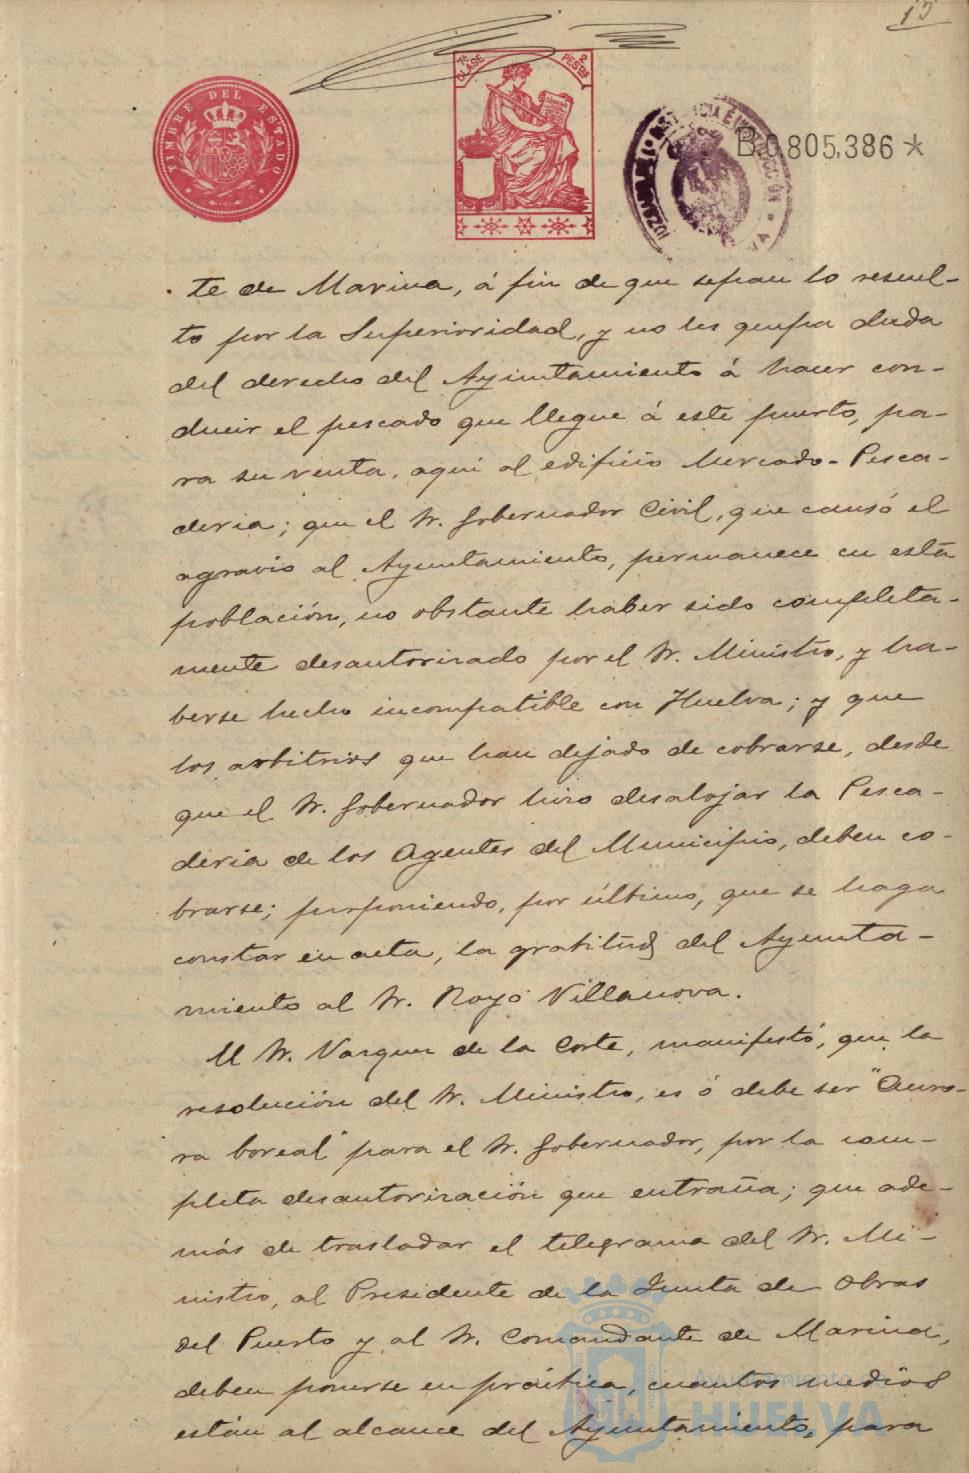 15
TIMBRE DEL ESTADO
7ª CLASE
2 PESTAS
B.0.805,386 *
te de Marina, á fin de que sepan lo resuel-
to por la Superioridad, y no les quepa duda
del derecho del Ayuntamiento á hacer con-
ducir el pescado que llegue á este puerto, pa-
ra su venta, aquí al edificio Mercado-Pesca-
deria; que el Sr. Gobernador Civil, que causó el
agravio al Ayuntamiento, permanece en esta
población, no obstante haber sido completa-
mente desautorizado por el Sr. Ministro, y ha-
berse hecho incompatible con Huelva; y que
los arbitrios que han dejado de cobrarse, desde
que el Sr. Gobernador hizo desalojar la Pesca-
deria de los Agentes del Municipio, deben co-
brarse; proponiendo, por último, que se haga
constar en acta, la gratitud del Ayunta-
miento al Sr. Royo Villanova.
El Sr. Vazquez de la Corte, manifestó, que la
resolución del Sr. Ministro, es ó debe ser "Auro-
ra boreal" para el Sr. Gobernador, por la com-
pleta desautorización que entraña; que ade-
más de trasladar el telegrama del Sr. Mi-
nistro, al Presidente de la Junta de Obras
del Puerto y al Sr. Comandante de Marina,
deben ponerse en práctica, cuantos medios
están al alcance del Ayuntamiento, para
Ayuntamiento de
HUELVA